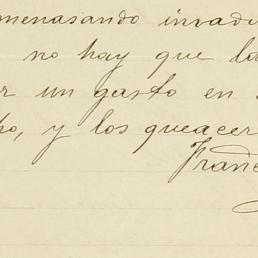 menasando invadi
no hay que la
r un gasto en
o, y los queacer
Franc